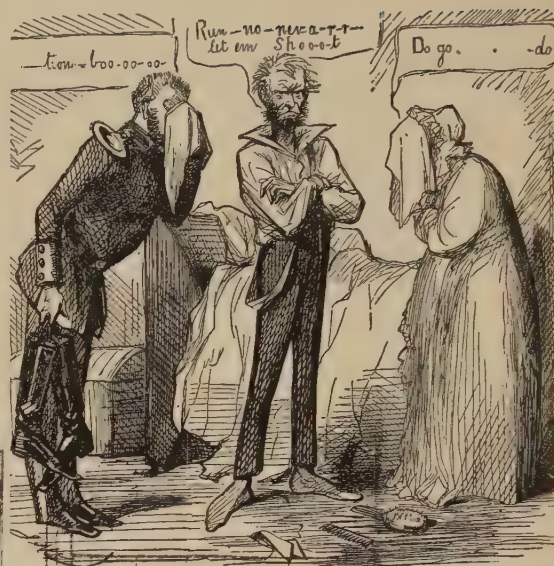 —tion-boo-oo-oo-
Run-no-neva-r-r-
let em Shooot
Do go. . -do